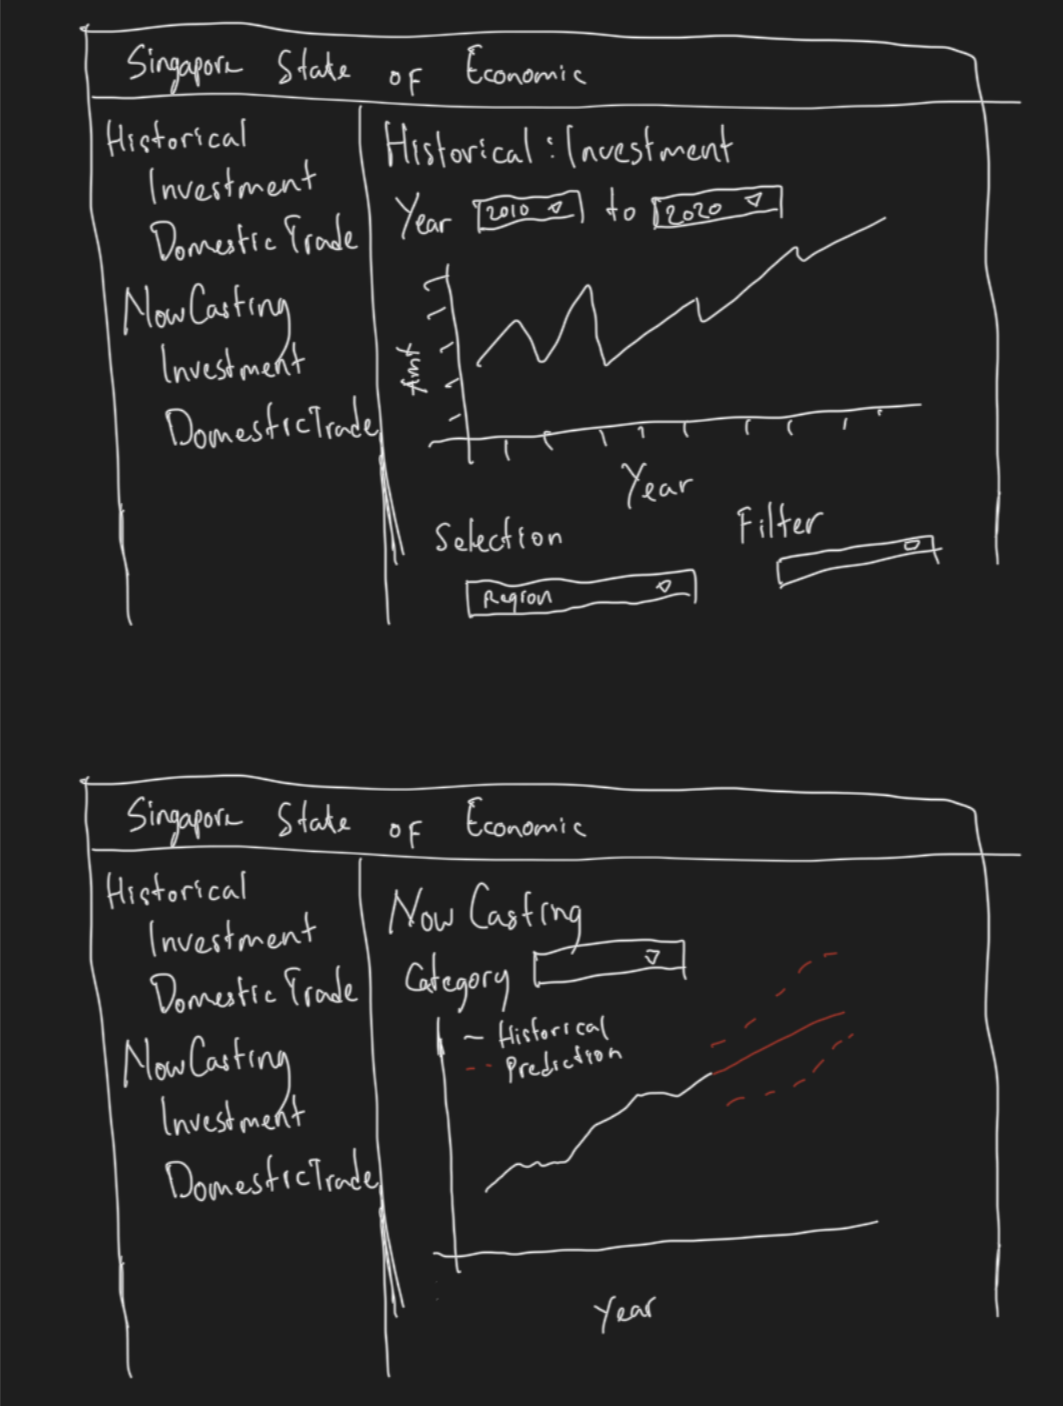 Singapore State of Economic
Historical
Investment
Domestic Trade
NowCasting
Investment
DomesticTrade
Historical : Investment
Year 2010 to 2020
Amt
Year
Selection
Region
Filter
Singapore State of Economic
Historical
Investment
Domestic Trade
NowCasting
Investment
DomesticTrade
Now Casting
Category
Historical
Prediction
Year